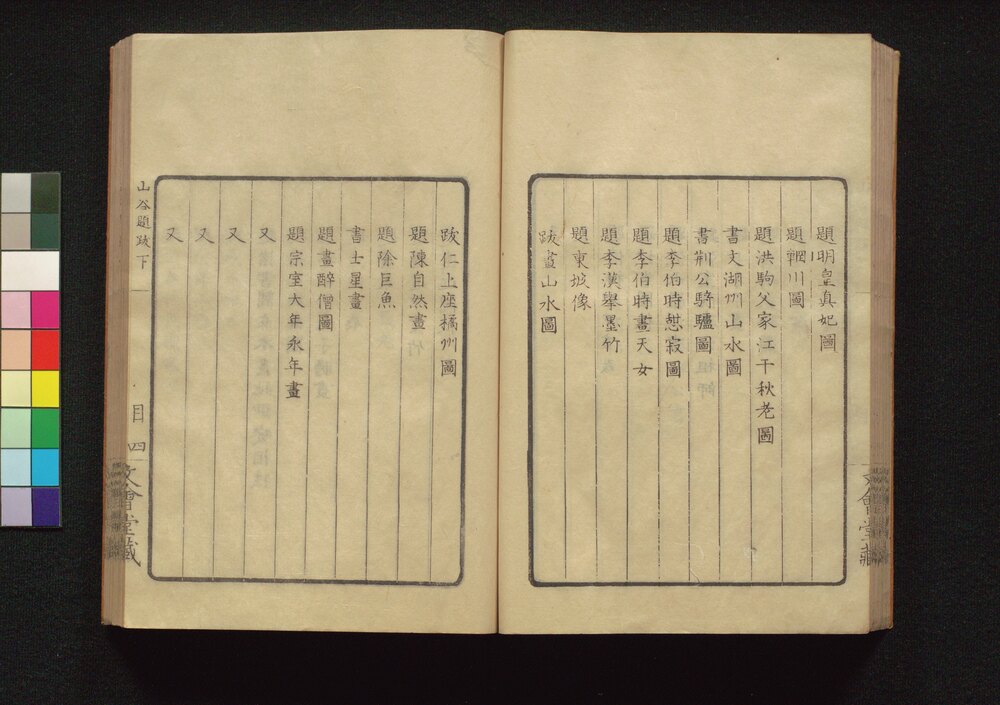 題明皇真妃圖
題輞川圖
題洪駒父家江干秋老圖
書文湖州山水圖
書荆公騎驢圖
題李伯時憩寂圖
題李伯時畫天女
題李漢舉墨竹
題東坡像
跋畫山水圖
跋仁上座橘州圖
題陳自然畫
題徐巨魚
書士星畫
題畫醉僧圖
題宗室大年永年畫
又
又
又
又
山谷題跋下
目
四
文會堂藏
文會堂藏